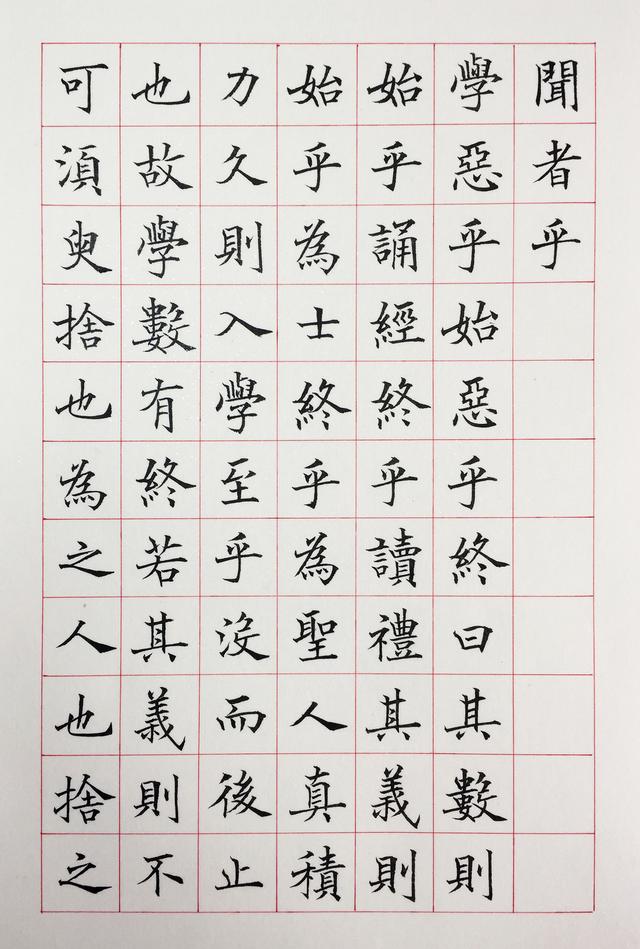 聞者乎
學惡乎始惡乎終曰其數則
始乎誦經終乎讀禮其義則
始乎為士終乎為聖人真積
力久則入學至乎沒而後止
也故學數有終若其義則不
可須臾捨也為之人也捨之